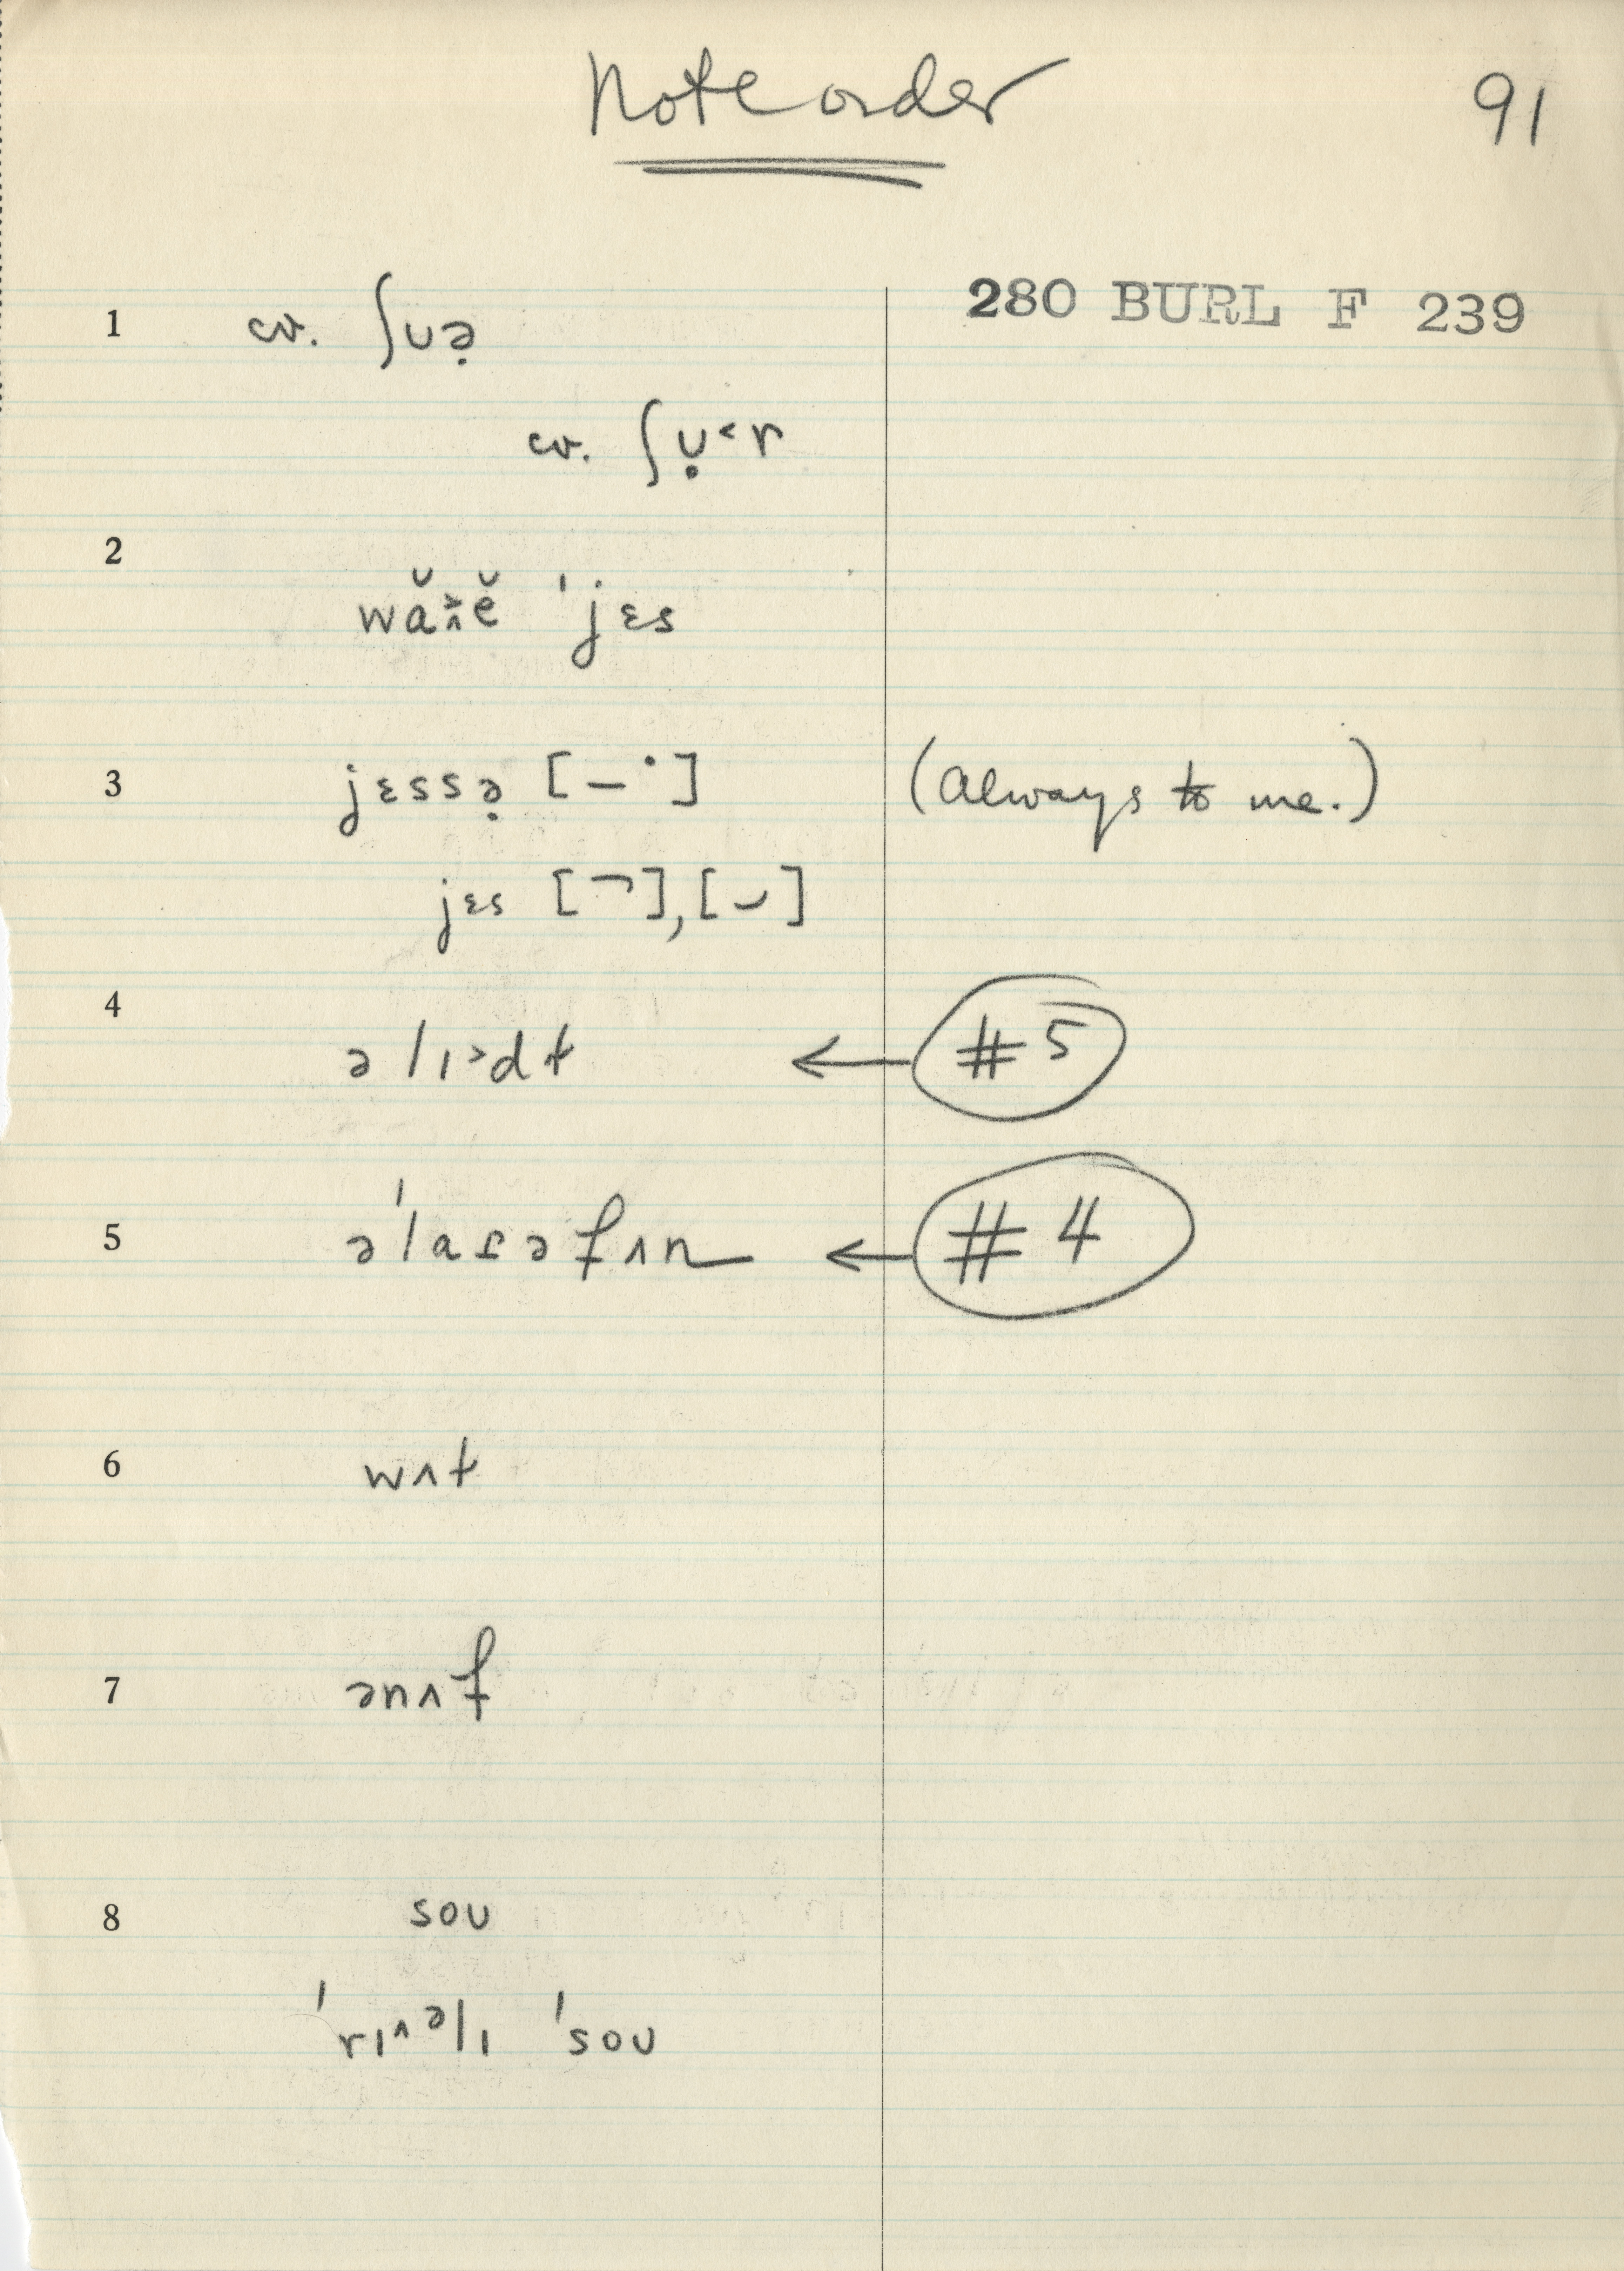 Note order
91
280 BURL F 239
1 cv. ʃʊə̣
cv. ʃʊ̣˂r
2
'jɛs
3 jɛssə̣ [–˙] (always to me.)
jɛs [¬], [⌣]
4
ə lɪ˃dt ← #5
5 ə'laɾəfʌn ← #4
6 wʌt
7 ənʌf
8 soʊ
'rɪ^əlɪ 'soʊ